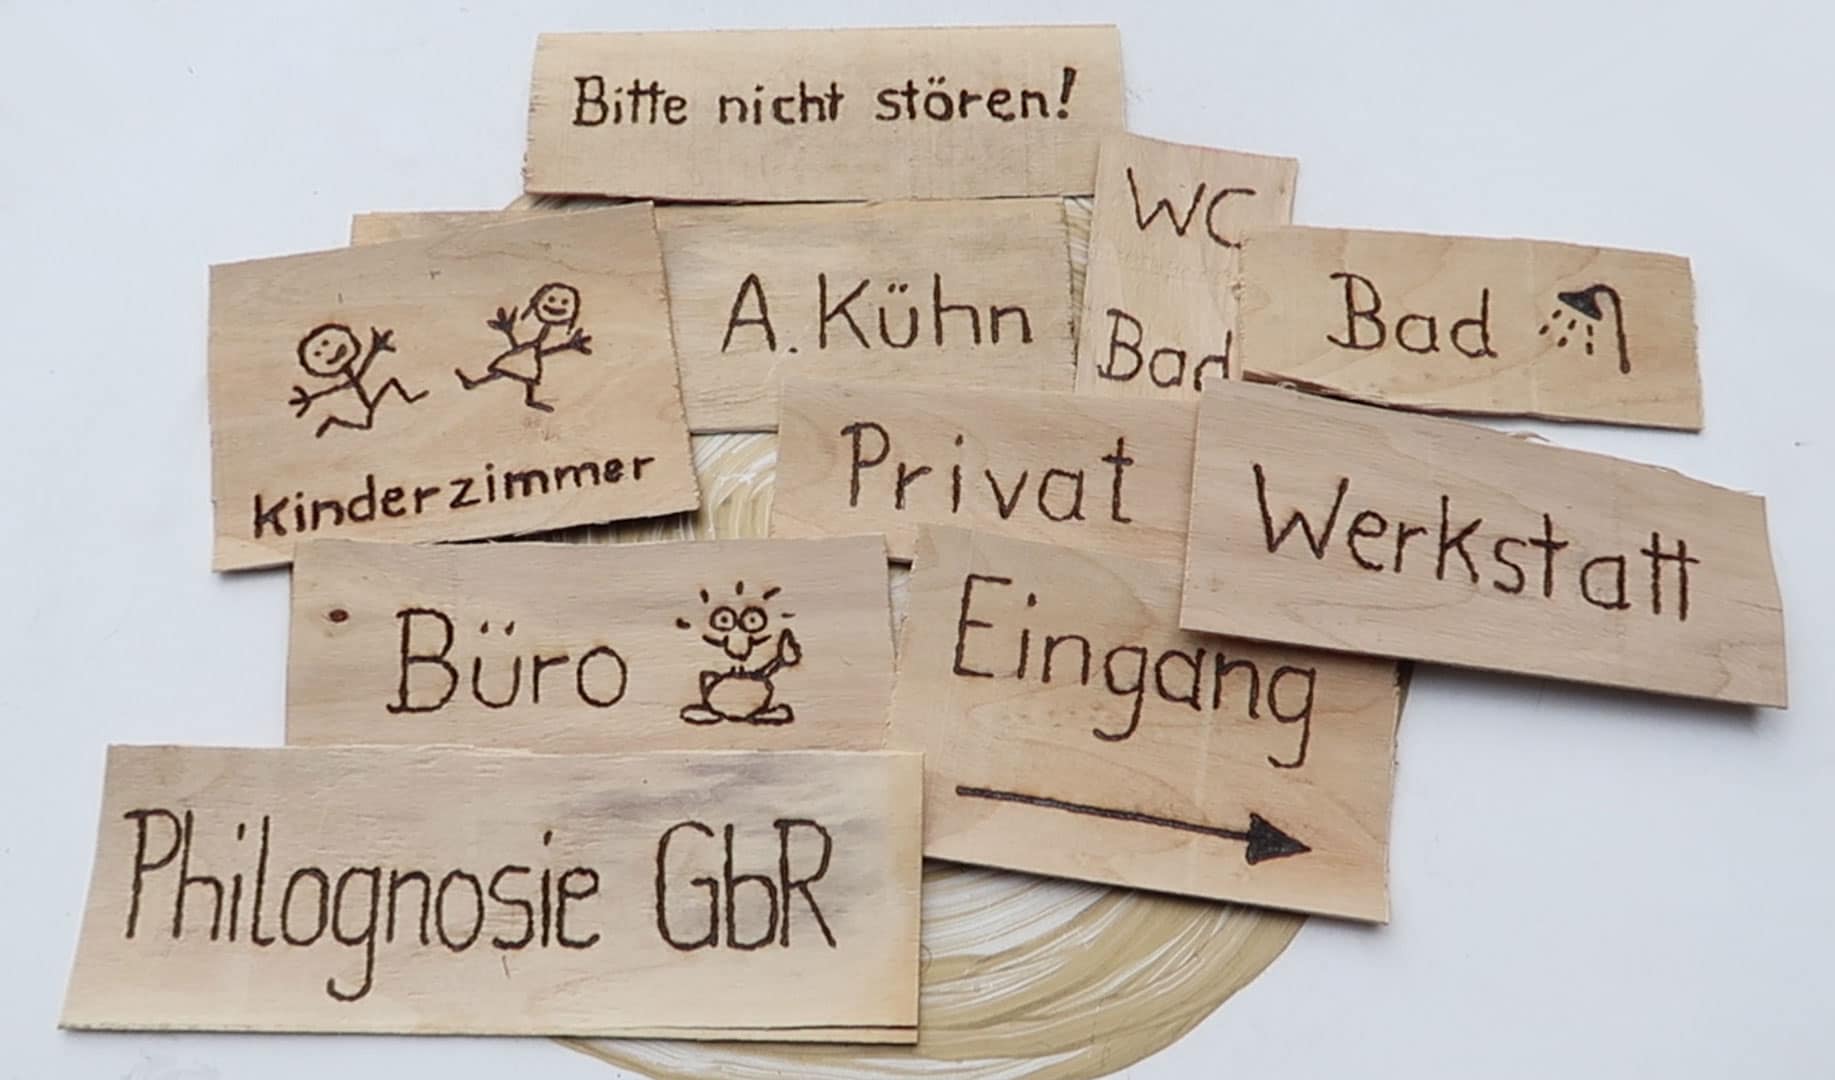 Bitte nicht stören!
WC
Bad
A. Kühn
Bad
Kinderzimmer
Privat
Werkstatt
Büro
Eingang
Philognosie GbR